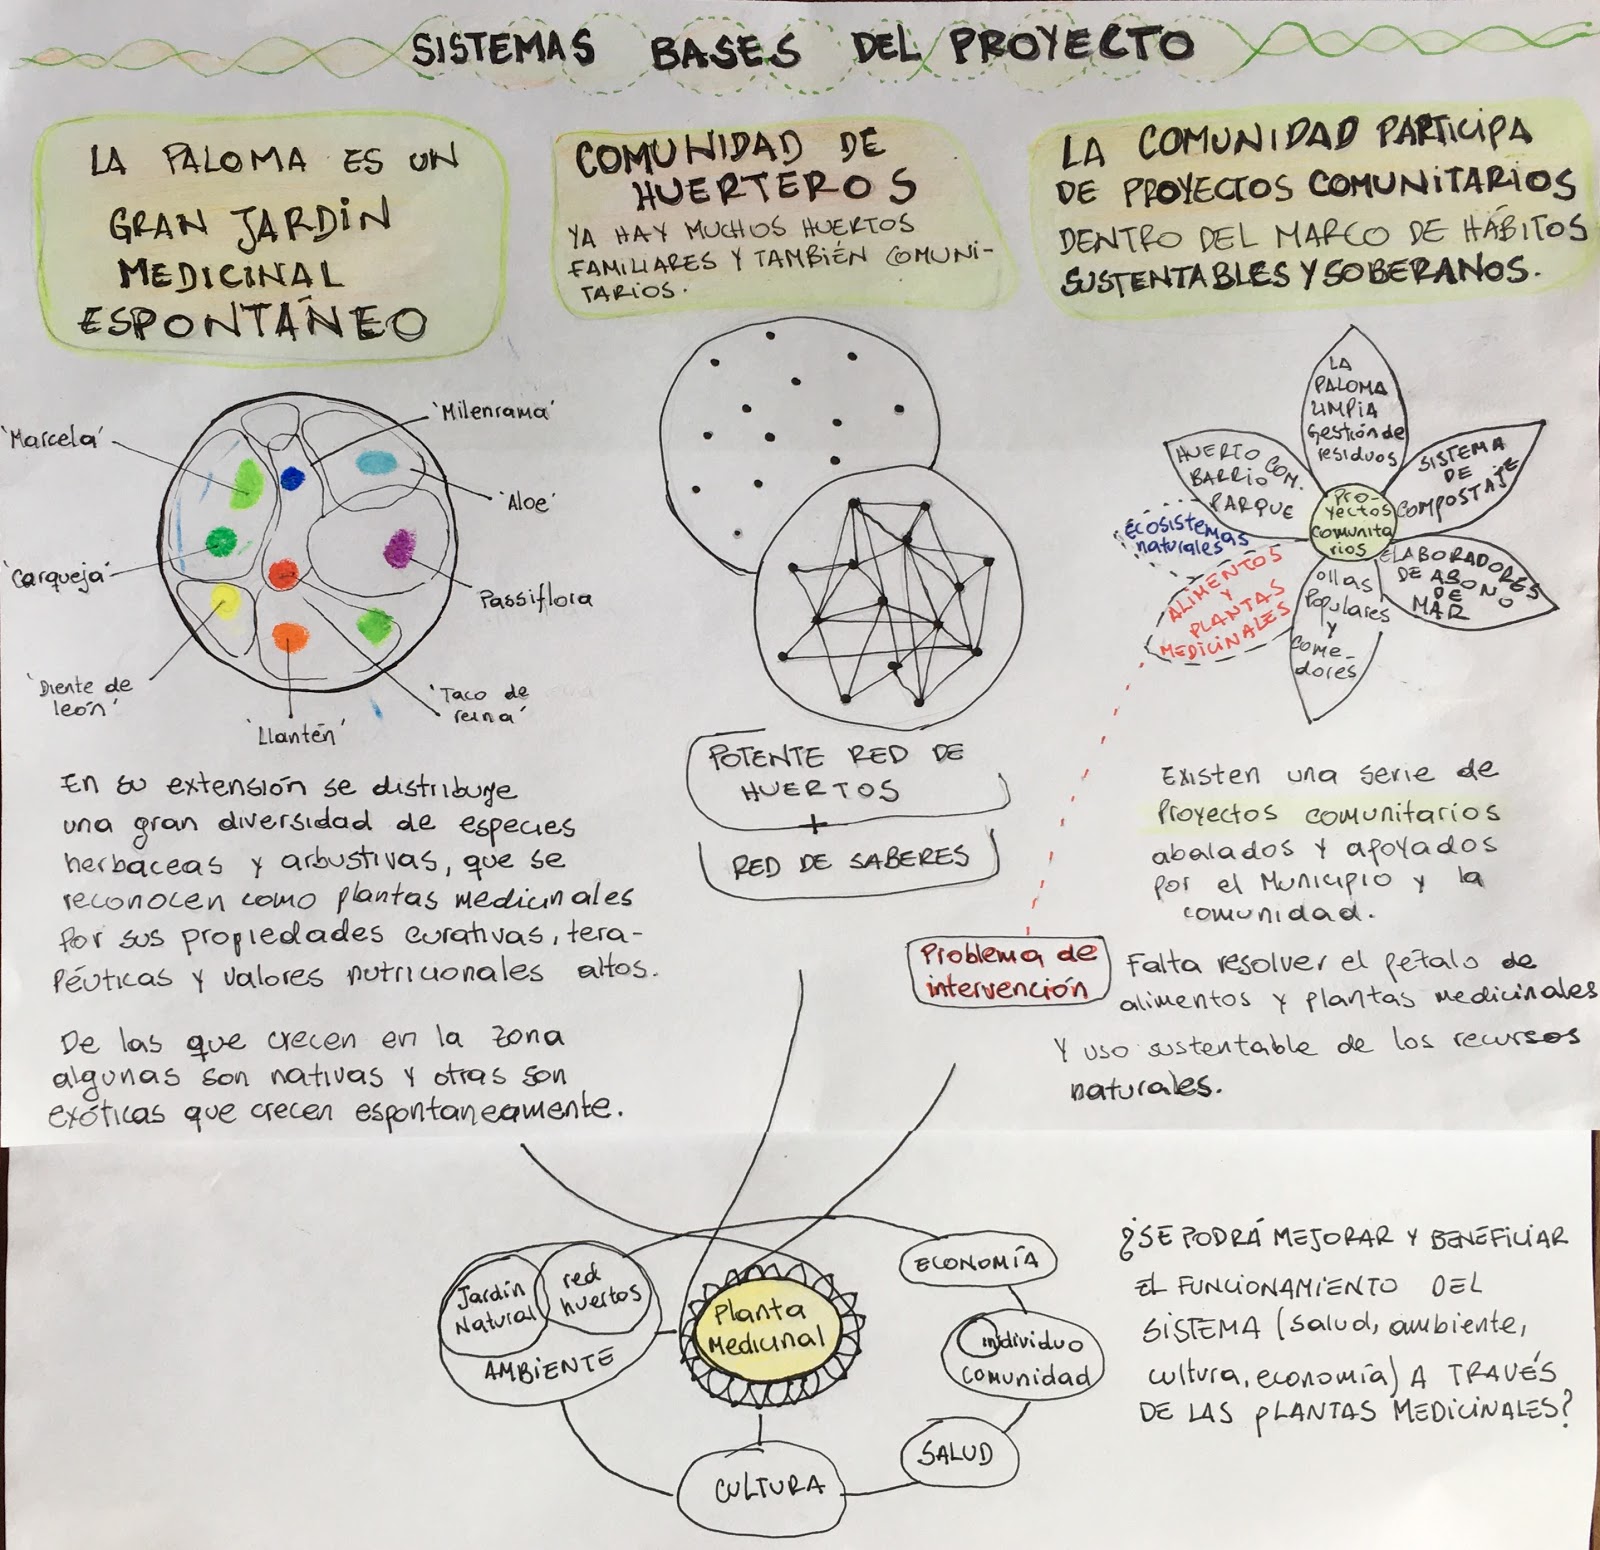 SISTEMAS BASES DEL PROYECTO
LA PALOMA ES UN
GRAN JARDIN
MEDICINAL
ESPONTÁNEO
'Marcela'
'Milenrama'
'Aloe'
'Carqueja'
Passiflora
'Diente de
león'
'Llantén'
'Taco de
reina'
En su extensión se distribuye
una gran diversidad de especies
herbáceas y arbustivas, que se
reconocen como plantas medicinales
por sus propiedades curativas, tera-
péuticas y valores nutricionales altos.
De las que crecen en la zona
algunas son nativas y otras son
exóticas que crecen espontaneamente.
COMUNIDAD DE
HUERTEROS
YA HAY MUCHOS HUERTOS
FAMILIARES Y TAMBIÉN COMUNI-
TARIOS.
POTENTE RED DE
HUERTOS
+
RED DE SABERES
LA COMUNIDAD PARTICIPA
DE PROYECTOS COMUNITARIOS
DENTRO DEL MARCO DE HÁBITOS
SUSTENTABLES Y SOBERANOS.
LA
PALOMA
LIMPIA
Gestión de
residuos
HUERTO COM.
BARRIO
PARQUE
SISTEMA
DE
COMPOSTAJE
Pro-
yectos
Comunita
rios
ecosistemas
naturales
ALIMENTOS
Y
PLANTAS
MEDICINALES
ollas
Populares
y
come-
dores
ELABORADORES
DE ABONO
DE
MAR
Existen una serie de
Proyectos comunitarios
abalados y apoyados
por el Municipio y la
comunidad.
Problema de
intervención
Falta resolver el pétalo de
alimentos y plantas medicinales
Y uso sustentable de los recursos
naturales.
Jardín
Natural
red
huertos
AMBIENTE
Planta
Medicinal
ECONOMÍA
individuo
comunidad
SALUD
CULTURA
¿SE PODRÁ MEJORAR Y BENEFICIAR
EL FUNCIONAMIENTO DEL
SISTEMA (salud, ambiente,
cultura, economía) A TRAVÉS
DE LAS PLANTAS MEDICINALES?